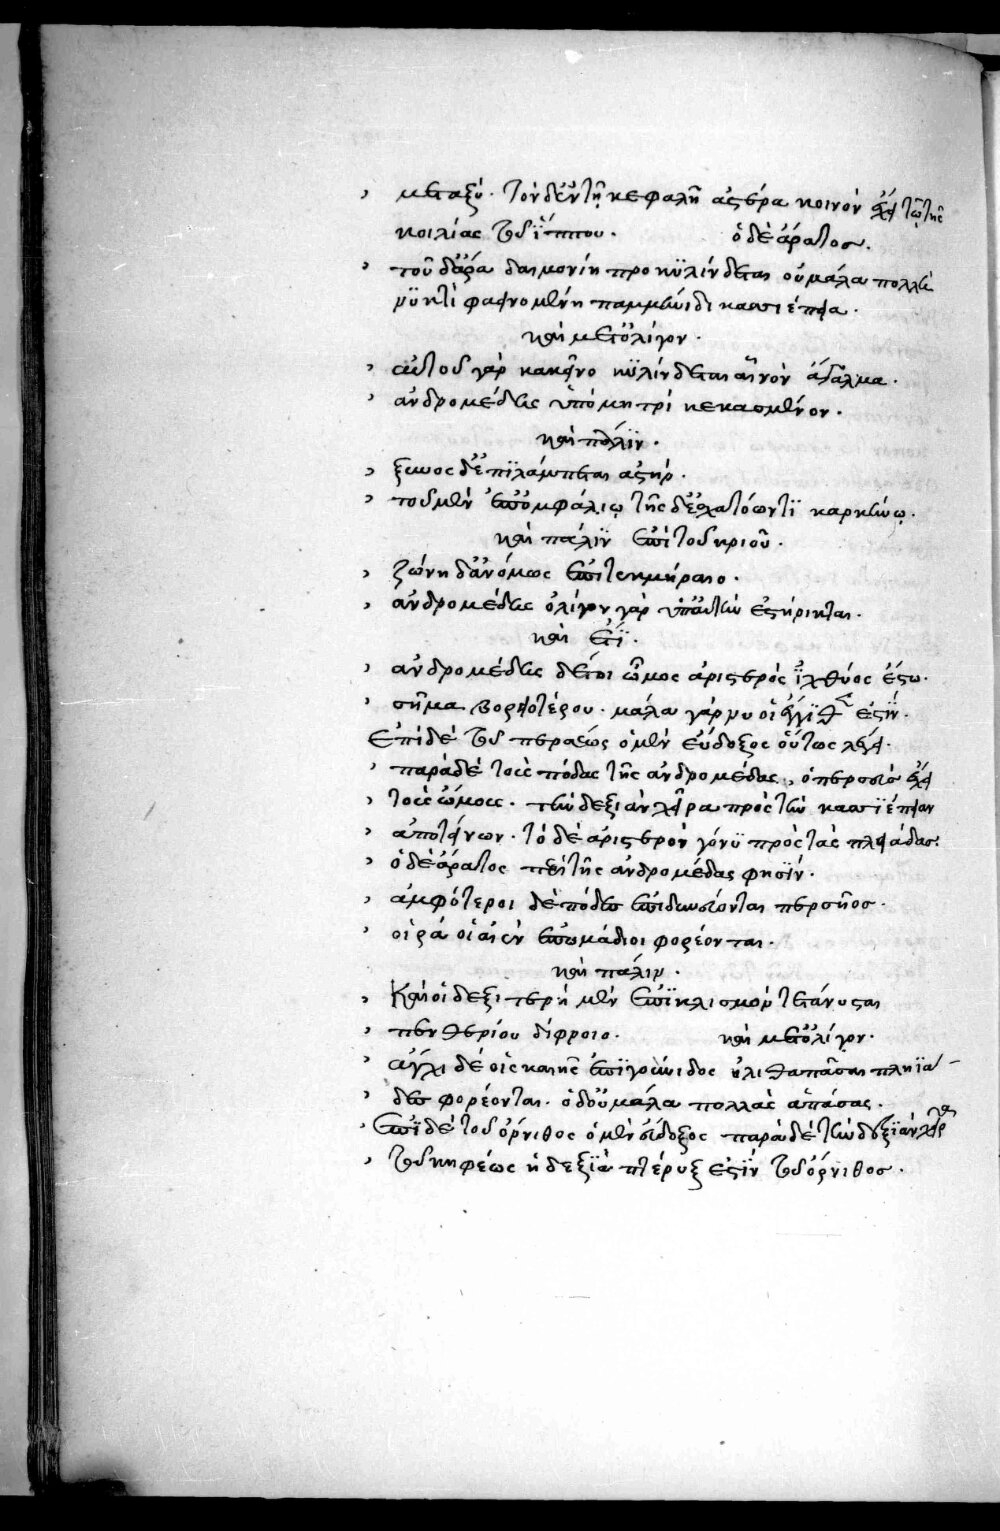 , μεταξύ. τὸν δ' ἐν τῇ κεφαλῇ ἀστέρα κοινὸν ἔχει τῷ τῆς
κοιλίας τοῦ ἵππου. ὁ δὲ ἄρατος.
, τοῦ δ' ἄρα δαιμονίη προκυλίνδεται οὐ μάλα πολλὴ
νυκτὶ φαεινομένη παμμήνιδι κασσιέπεια.
καὶ μετ' ὀλίγον.
, αὐτοῦ γὰρ κἀκεῖνο κυλίνδεται αἰνὸν ἄγαλμα.
, ἀνδρομέδης ὑπὸ μητρὶ κεκασμένον.
καὶ πάλιν.
, ξυνὸς δ' ἐπιλάμπεται ἀστήρ.
, τοῦ μὲν ἐπ' ὀμφαλίῳ τῆς δ' ἐσχατόωντι καρήνῳ.
καὶ πάλιν ἐπὶ τοῦ κριοῦ.
, ζώνῃ δ' ἂν ὅμως ἐπιτεκμήραιο.
, ἀνδρομέδης ὀλίγον γὰρ ὑπ' αὐτὴν ἐστήρικται.
καὶ ἔτι.
, ἀνδρομέδης δέ τοι ὦμος ἀριστερὸς ἰχθύος ἔστω.
, σῆμα βορειοτέρου. μάλα γάρ νυ οἱ ἐγγύθεν ἐστίν.
Ἐπὶ δὲ τοῦ περσέως ὁ μὲν εὔδοξος οὕτως λέγει.
, παρὰ δὲ τοὺς πόδας τῆς ἀνδρομέδας, ὁ περσεὺς ἔχει
, τοὺς ὤμους. τὴν δεξιὰν χεῖρα πρὸς τὴν κασσιέπειαν
, ἀποτείνων. τὸ δὲ ἀριστερὸν γόνυ πρὸς τὰς πλειάδας.
, ὁ δὲ ἄρατος περὶ τῆς ἀνδρομέδας φησίν.
, ἀμφότεροι δὲ πόδες ἐπιδευσίονται περσῆος.
, οἵ ῥά οἱ αἰὲν ἐπωμάδιοι φορέονται.
καὶ πάλιν.
, Καὶ οἱ δεξιτερὴ μὲν ἐπὶ κλισμὸν τετάνυσται
, πενθερίου δίφροιο. καὶ μετ' ὀλίγον.
, ἄγχι δέ οἱ σκαιῆς ἐπιγουνίδος ἤλιθα πᾶσαι πληϊά-
, δες φορέονται. ὁ δ' οὐ μάλα πολλὰς ἁπάσας.
, Ἐπὶ δὲ τοῦ ὄρνιθος ὁ μὲν εὔδοξος παρὰ δὲ τὴν δεξιὰν χεῖρα
, τοῦ κηφέως ἡ δεξιὰ πτέρυξ ἐστὶν τοῦ ὄρνιθος.